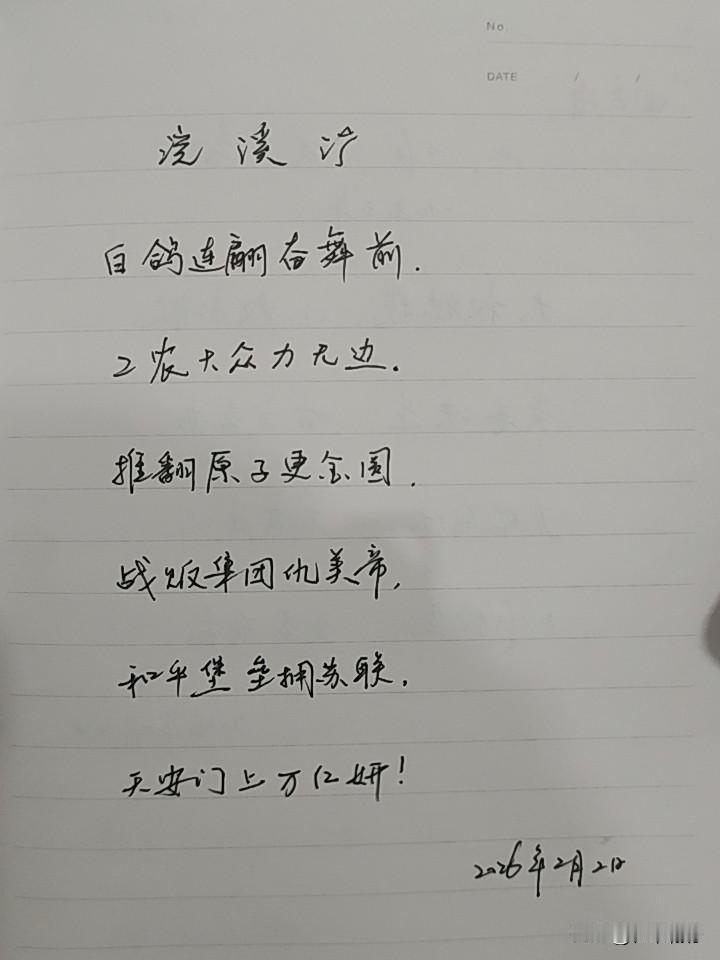 No.
DATE / /
浣溪沙
白鸽连翩奋舞前.
工农大众力无边.
推翻原子更金圆.
战贩集团仇美帝,
和平堡垒拥苏联.
天安门上万亿妍!
2026年2月2日